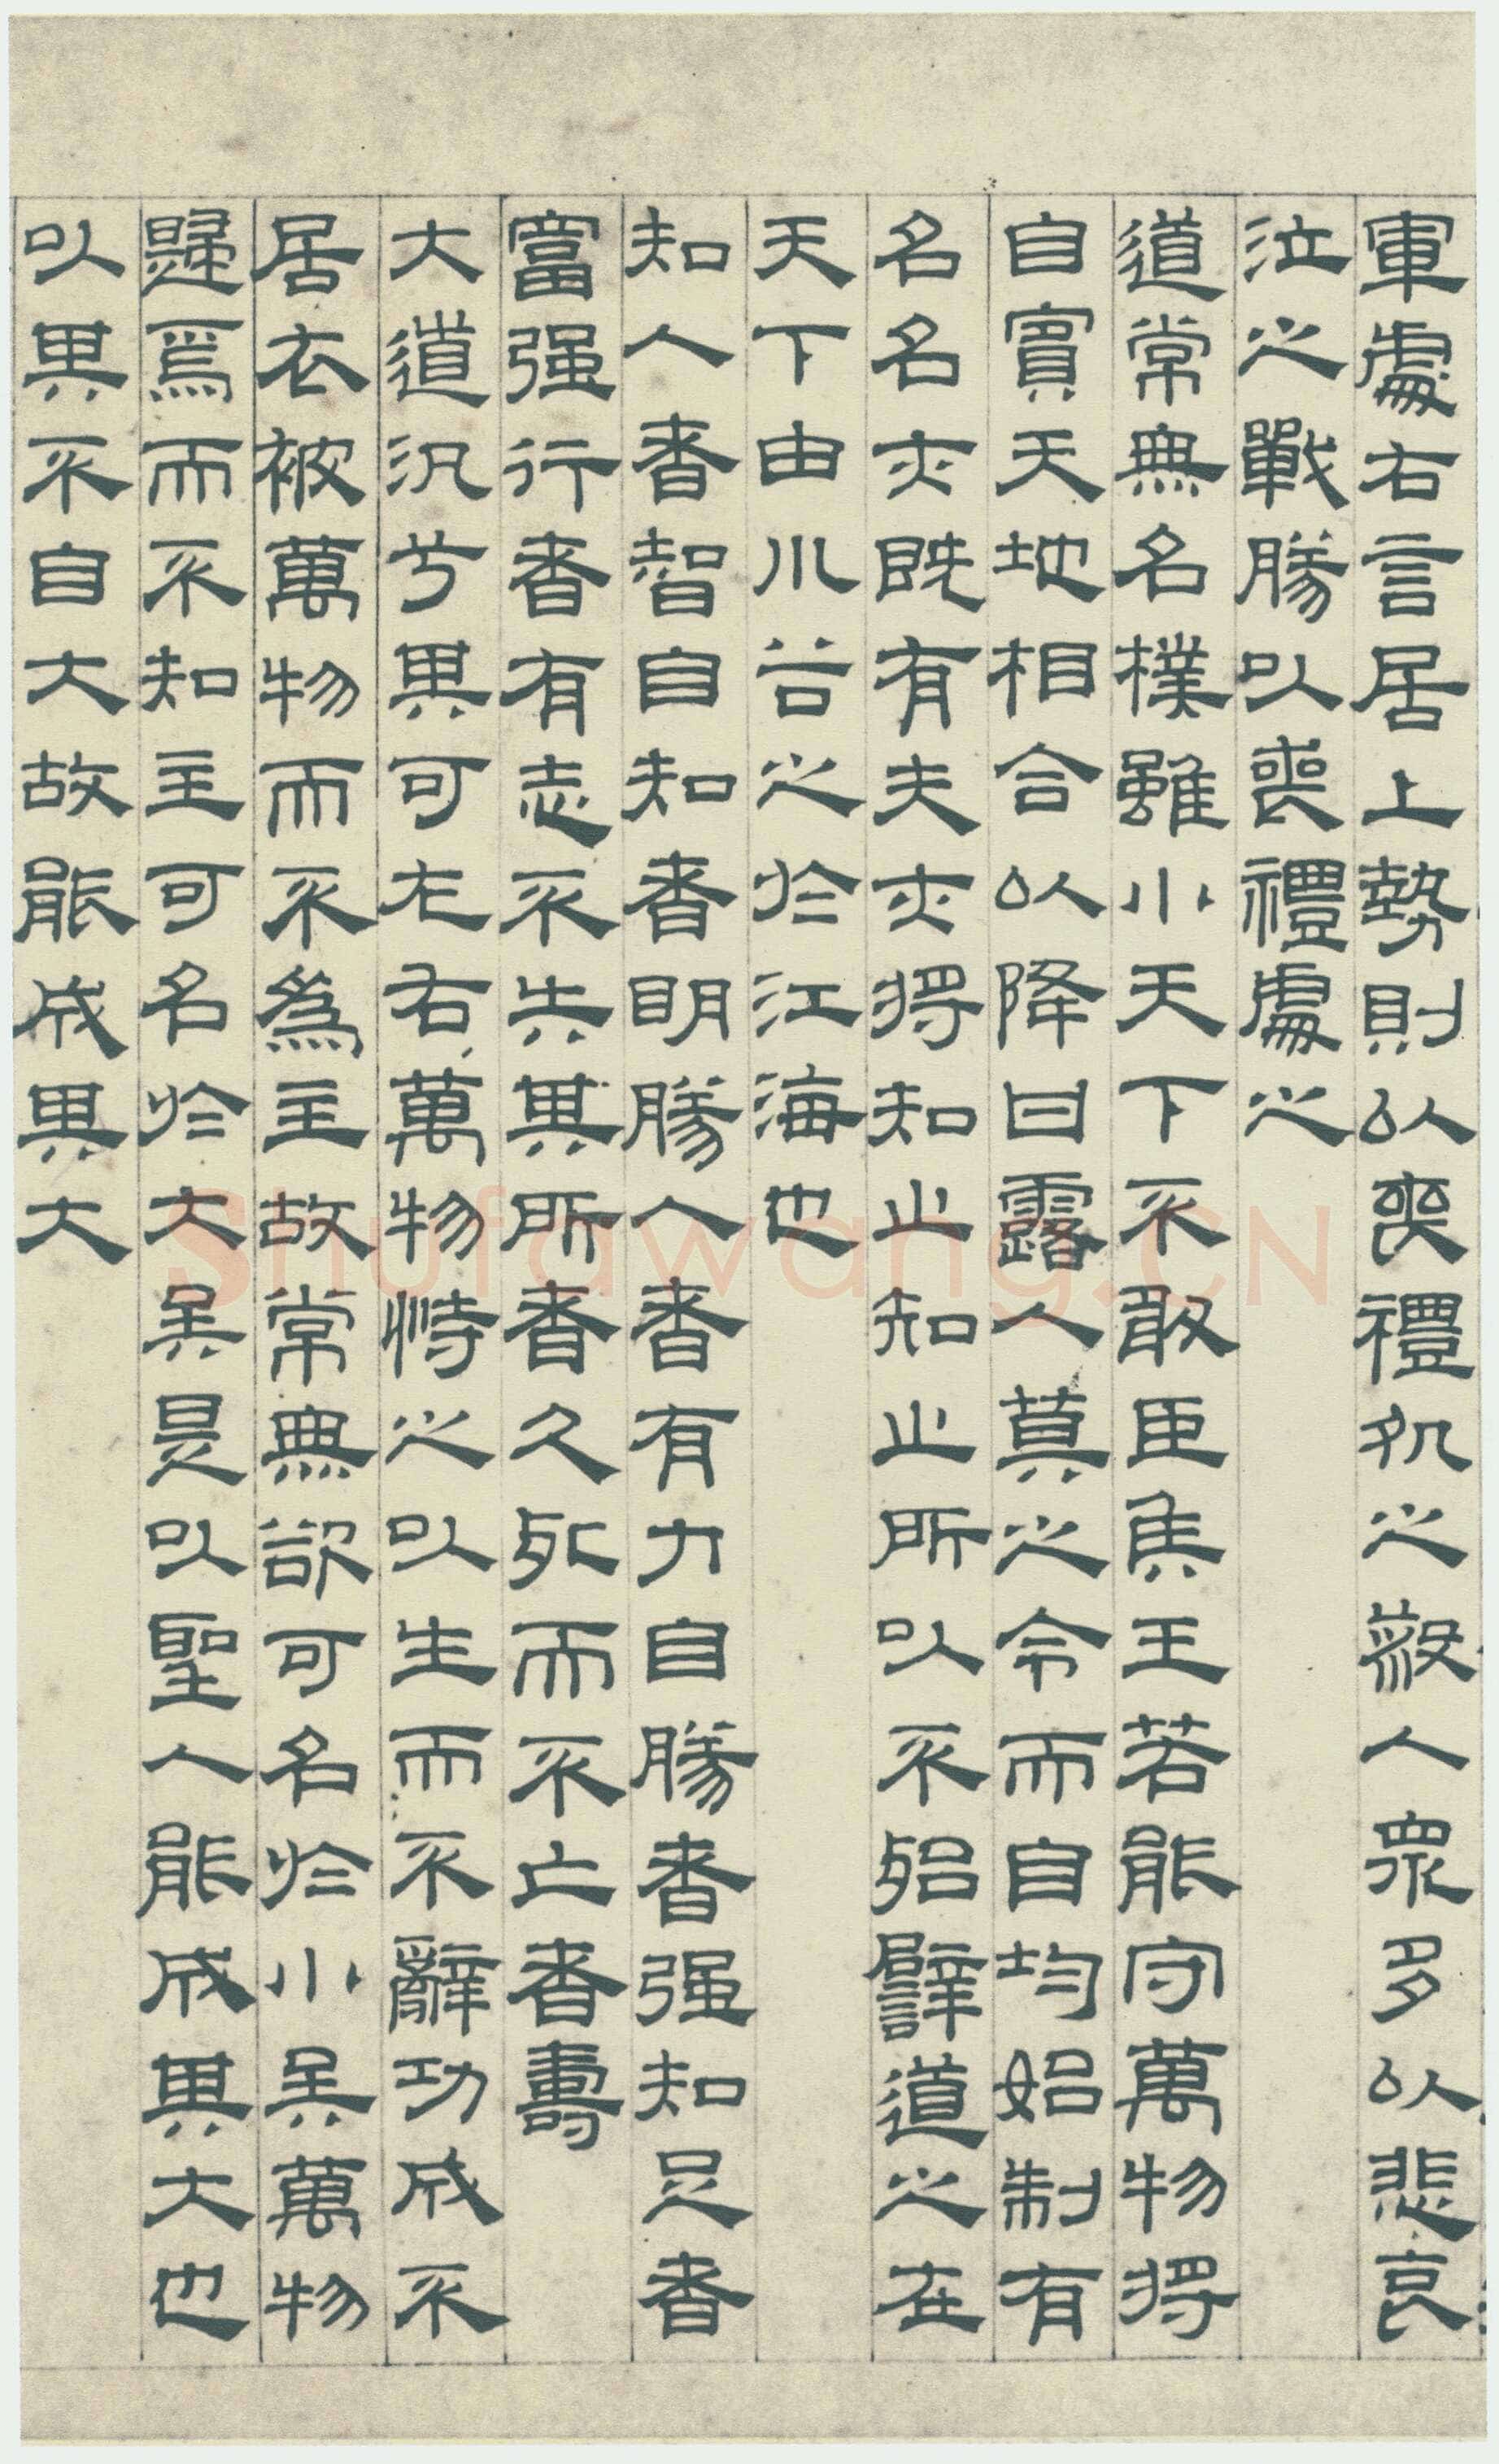 軍處右言居上勢則以喪禮処之殺人眾多以悲哀
泣之戰勝以喪禮處之
道常無名樸雖小天下不敢臣侯王若能守萬物將
自賓天地相合以降甘露人莫之令而自均始制有
名名亦既有夫亦將知止知止所以不殆譬道之在
天下由川谷之於江海也
知人者智自知者明勝人者有力自勝者强知足者
富强行者有志不失其所者久死而不亡者壽
大道汎兮其可左右萬物恃之以生而不辭功成不
居衣被萬物而不為主故常無欲可名於小矣萬物
歸焉而不知主可名於大矣是以聖人能成其大也
以其不自大故能成其大
Shufawang.CN